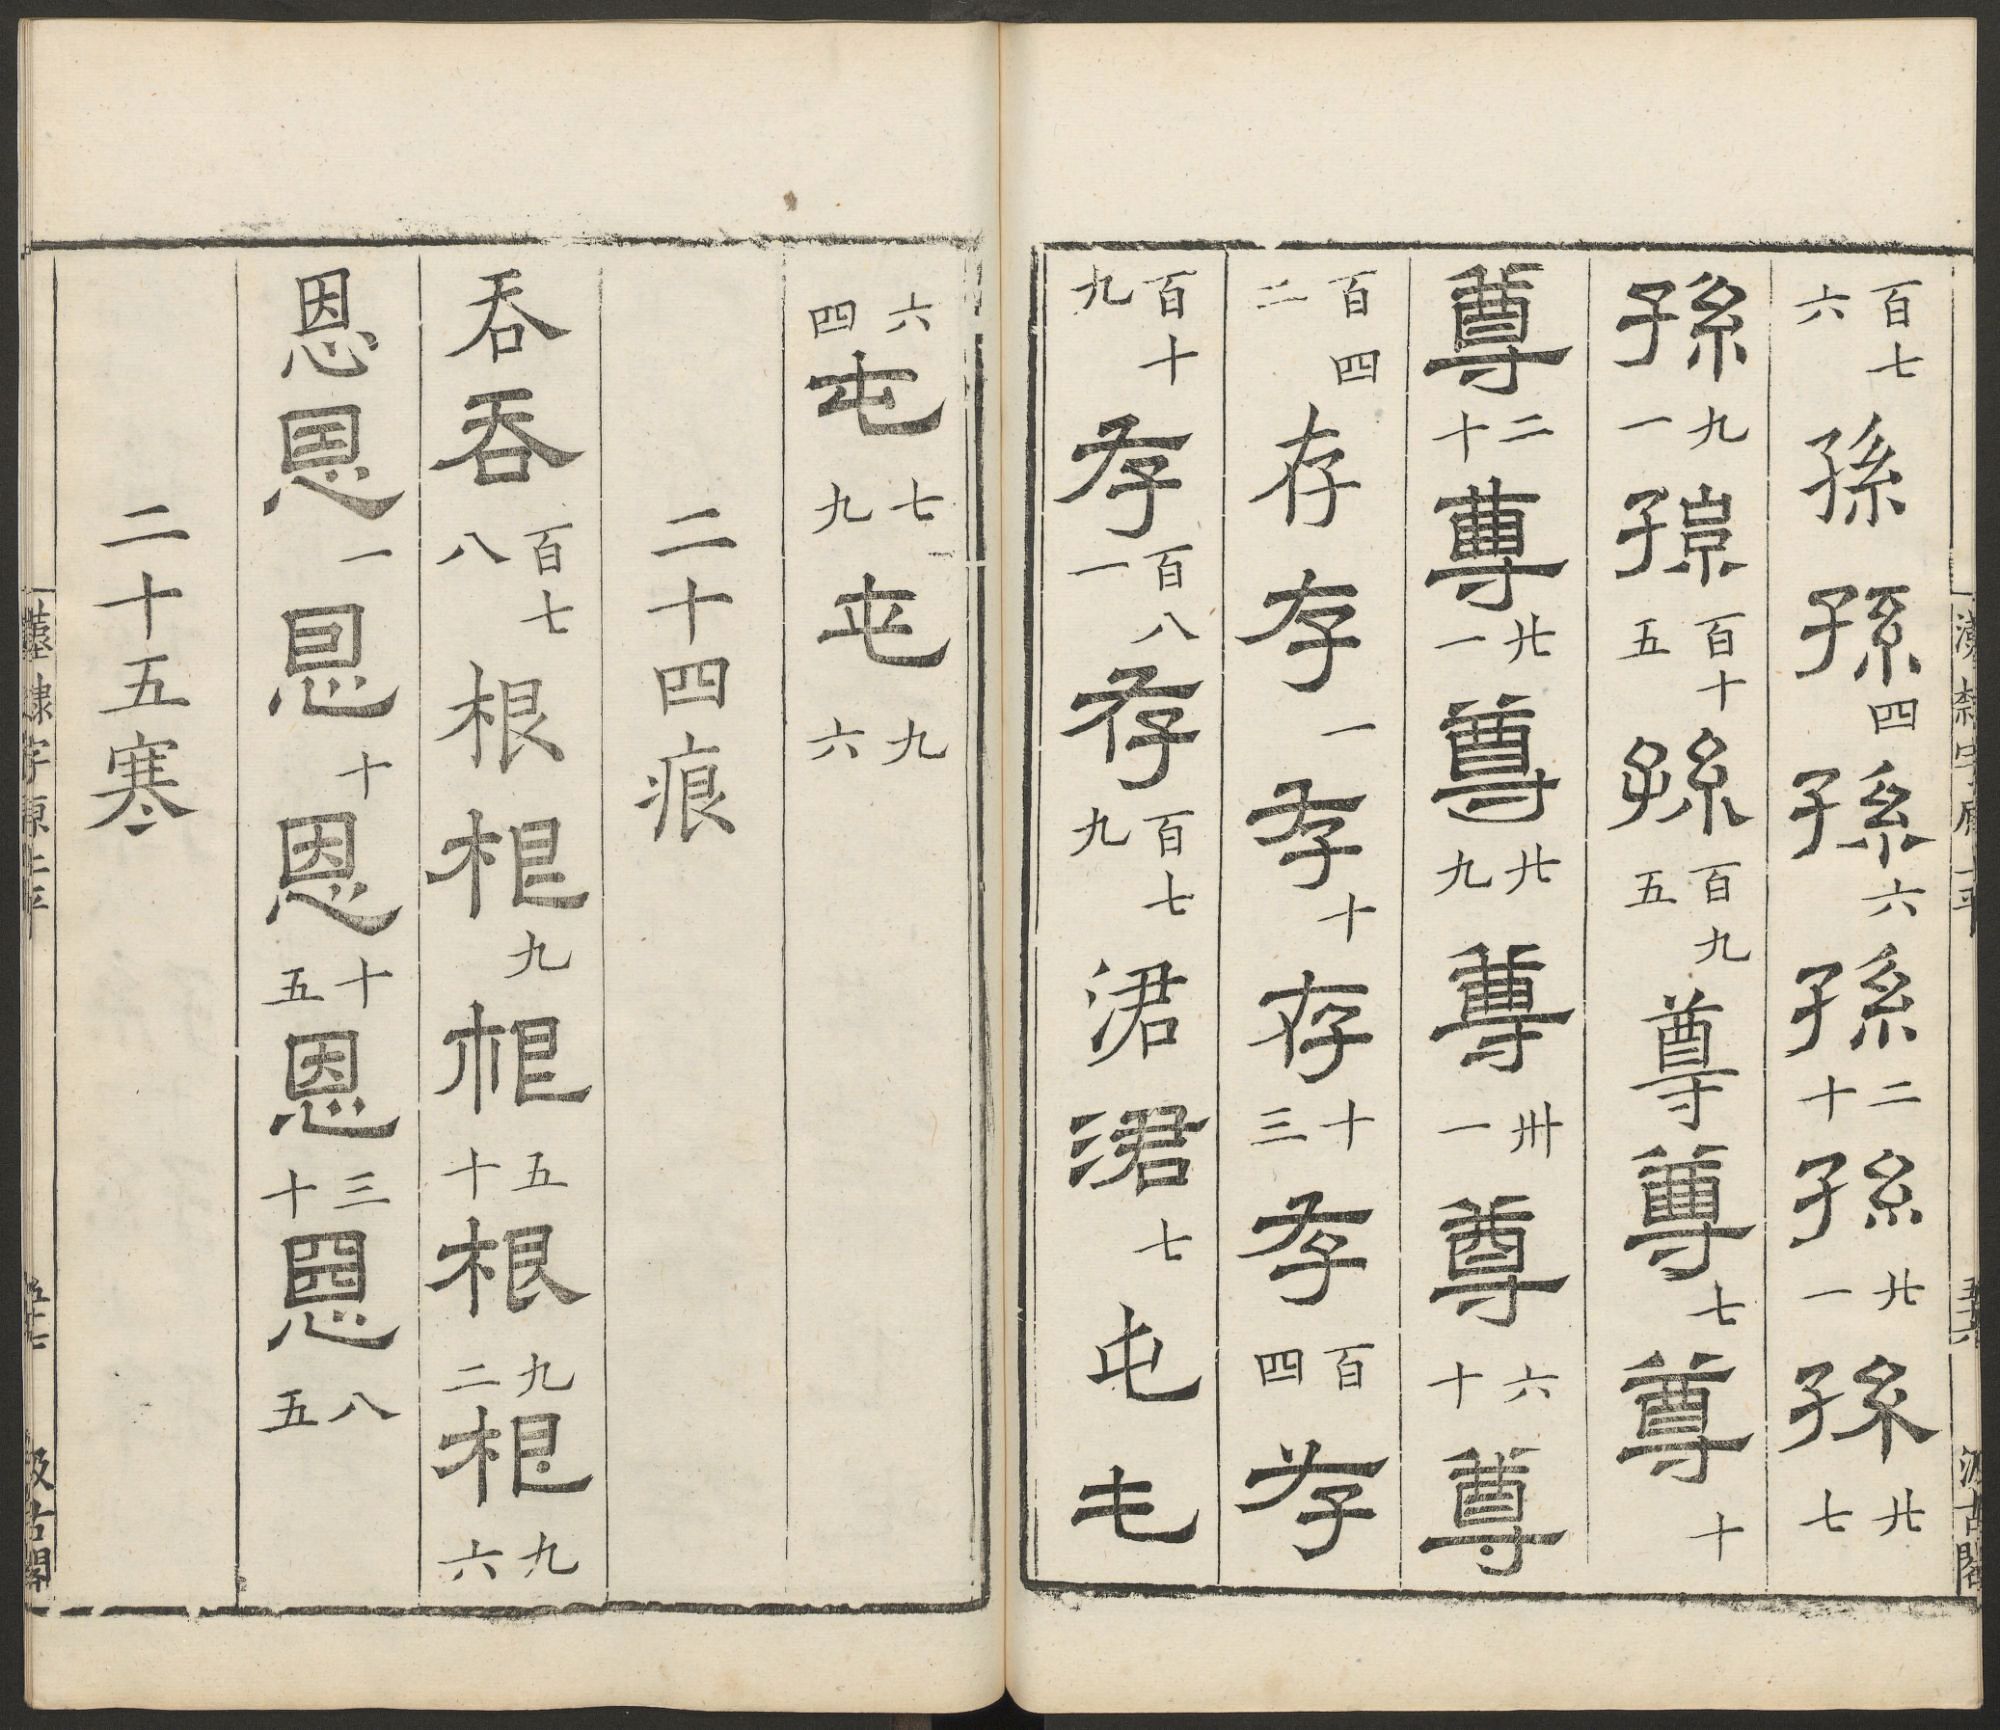 百七六孫孫四孫六孫二十孫廿一孫廿七
孫九一孫百十五孫百九五尊尊七尊十
尊二十尊廿一尊廿九尊卅一尊六十尊
百四二存存一存十存十三存百四存
百十九存百八一存百七九涒涒七屯屯
六四屯七九屯九六
二十四痕
吞吞百七八根根九根五十根九二根九六
恩恩一恩十恩十五恩三十恩八五
二十五寒
漢隸字原上平
五十六
汲古閣
漢隸字原上平
五十七
汲古閣